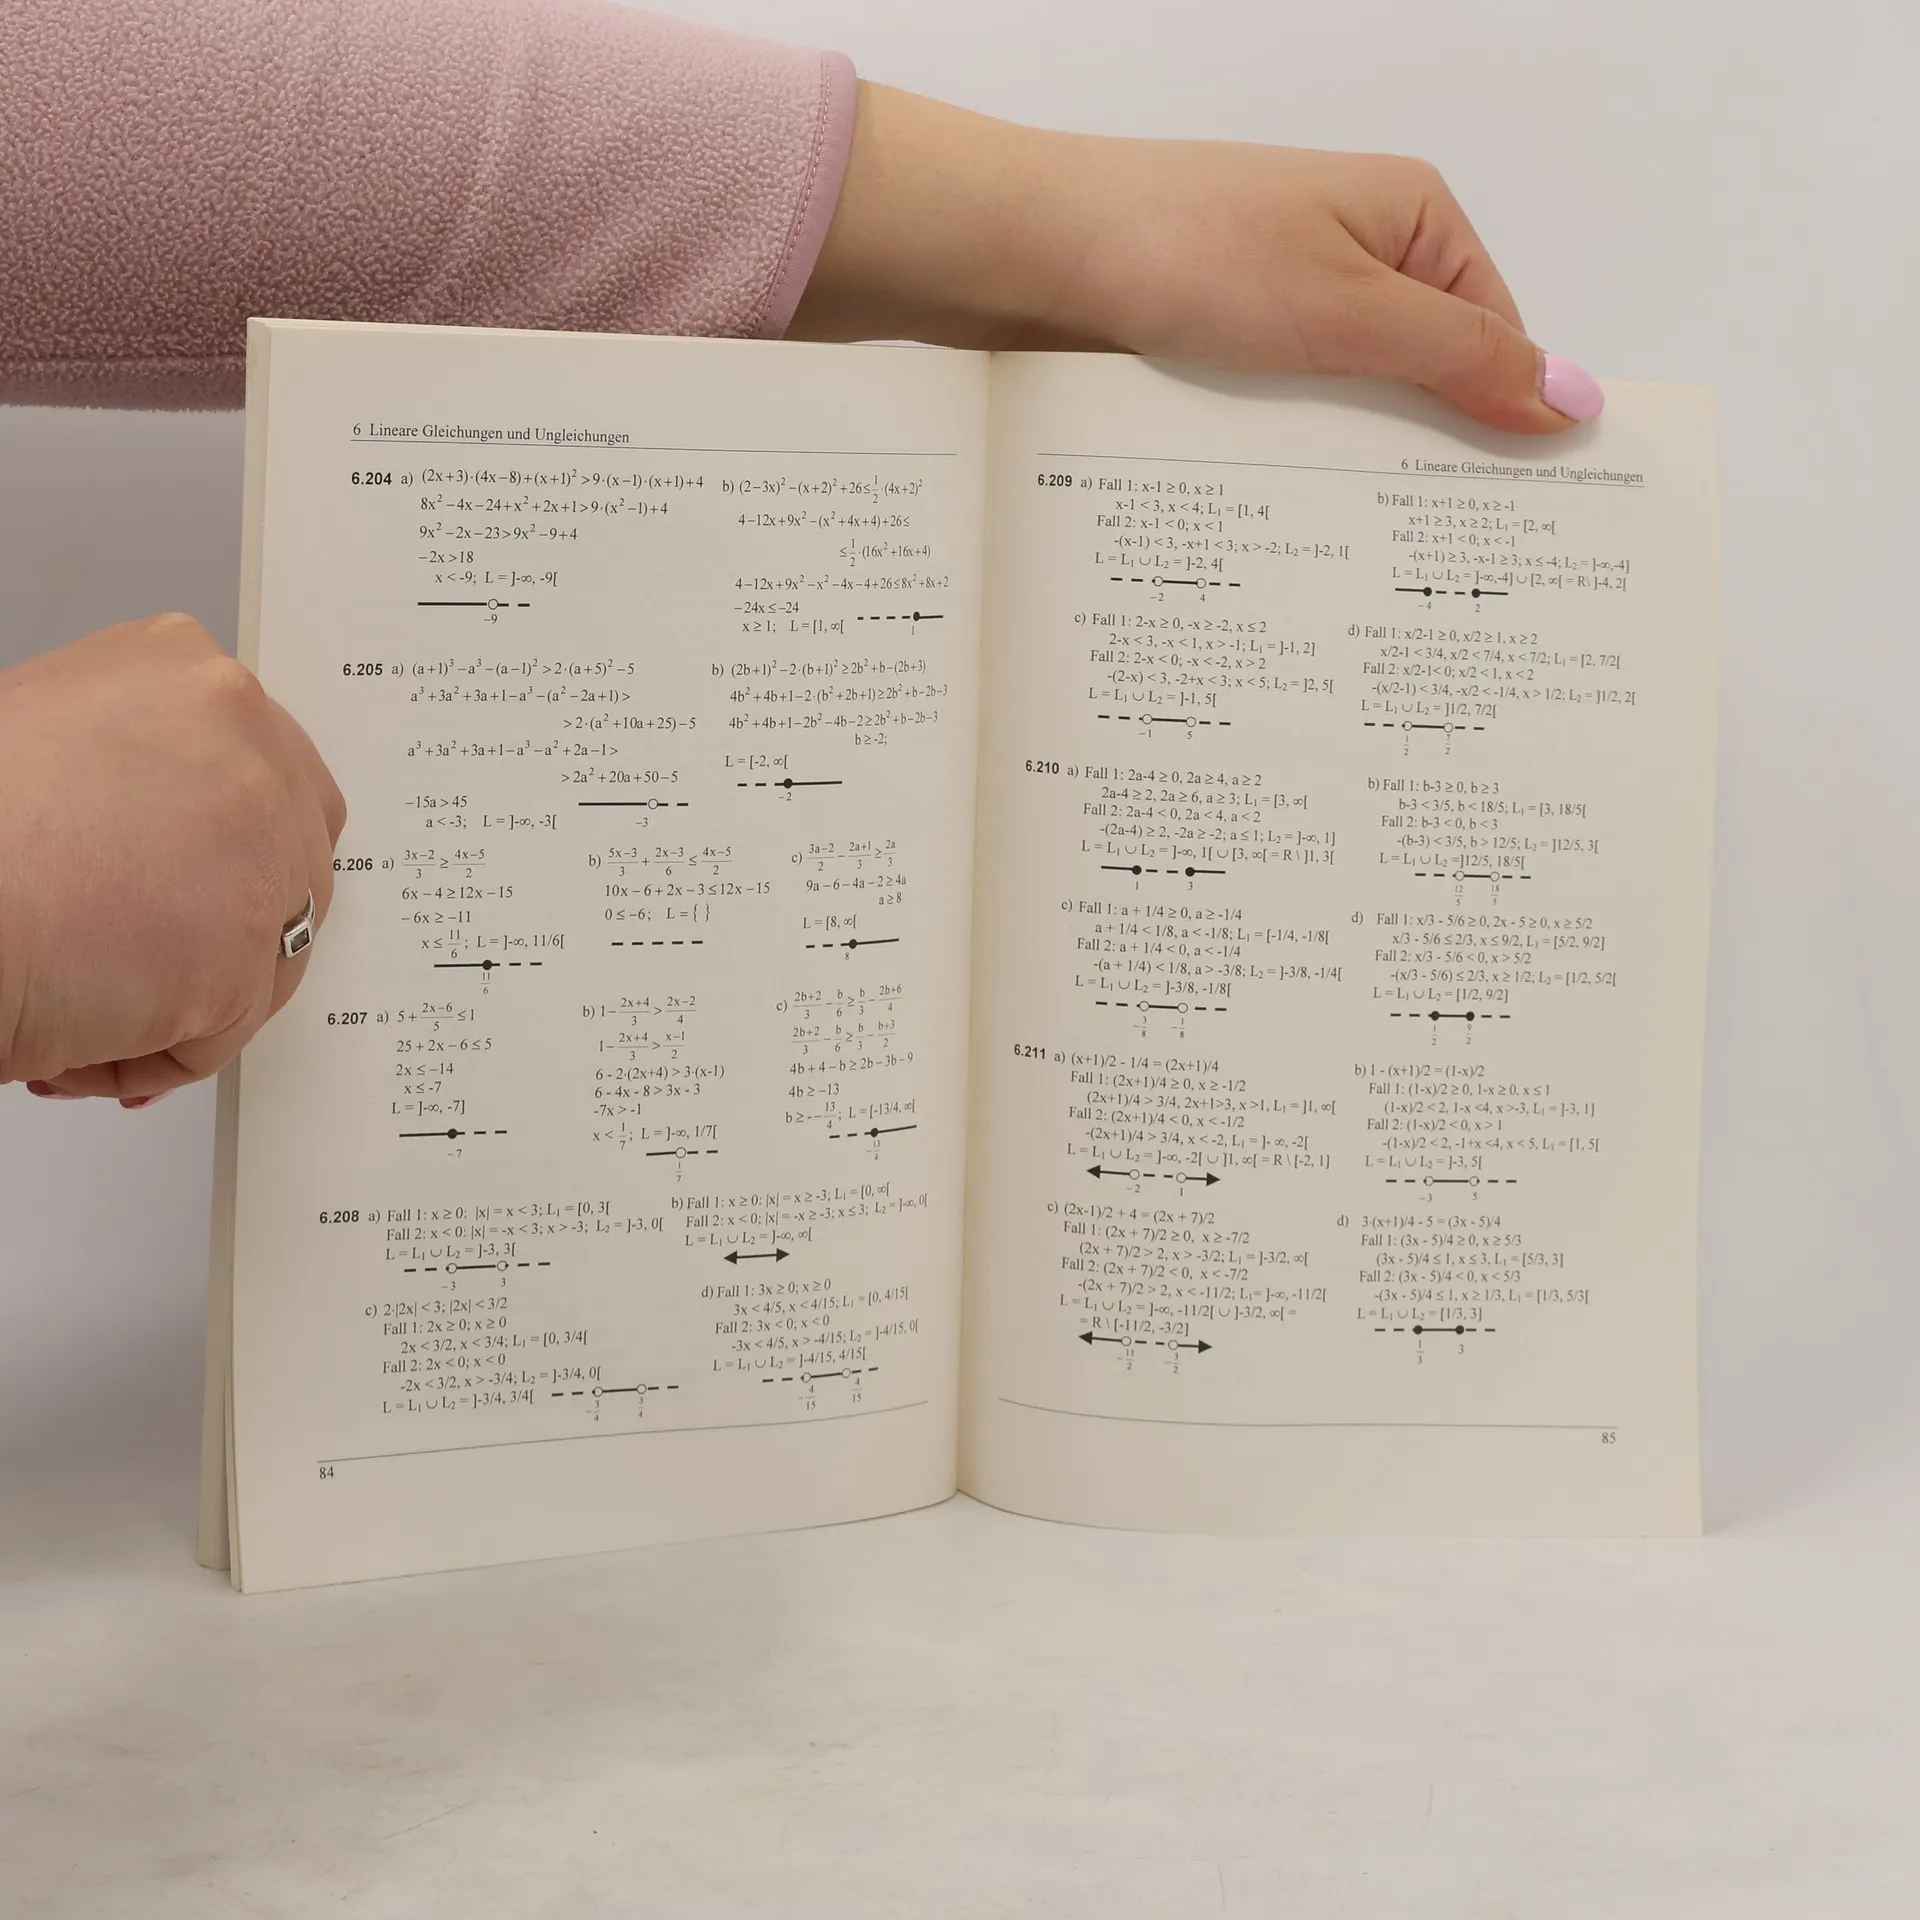 6 Lineare Gleichungen und Ungleichungen
6.204 a) (2x+3)·(4x−8)+(x+1)² >9·(x−1)·(x+1)+4
8x²−4x−24+x²+2x+1>9·(x²−1)+4
9x²−2x−23>9x²−9+4
−2x>18
x < -9; L = ]-∞, -9[
−9
b) (2−3x)²−(x+2)²+26≤1/2·(4x+2)²
4−12x+9x²−(x²+4x+4)+26≤
≤1/2·(16x²+16x+4)
4−12x+9x²−x²−4x−4+26≤8x²+8x+2
−24x≤−24
x≥1; L=[1, ∞[
1
6.205 a) (a+1)³−a³−(a−1)² >2·(a+5)²−5
a³+3a²+3a+1−a³−(a²−2a+1)>
>2·(a²+10a+25)−5
a³+3a²+3a+1−a³−a²+2a−1>
>2a²+20a+50−5
−15a>45
a<-3; L=]-∞, -3[
−3
b) (2b+1)²−2·(b+1)²≥2b²+b−(2b+3)
4b²+4b+1−2·(b²+2b+1)≥2b²+b−2b−3
4b²+4b+1−2b²−4b−2≥2b²+b−2b−3
b≥-2;
L=[-2, ∞[
−2
6.206 a) (3x−2)/3 ≥ (4x−5)/2
6x−4≥12x−15
−6x≥−11
x≤11/6; L=]-∞, 11/6[
11/6
b) (5x−3)/3 + (2x−3)/6 ≤ (4x−5)/2
10x−6+2x−3≤12x−15
0≤−6; L={ }
c) (3a−2)/2 − (2a+1)/3 ≥ 2a/3
9a−6−4a−2≥4a
a≥8
L=[8, ∞[
8
6.207 a) 5+(2x−6)/5 ≤1
25+2x−6≤5
2x≤−14
x≤-7
L=]-∞, -7]
−7
b) 1−(2x+4)/3 > (2x−2)/4
1−(2x+4)/3 > (x−1)/2
6 - 2·(2x+4) > 3·(x-1)
6 - 4x - 8 > 3x - 3
-7x > -1
x<1/7; L=]-∞, 1/7[
1/7
c) (2b+2)/3 − b/6 ≥ b/3 − (2b+6)/4
(2b+2)/3 − b/6 ≥ b/3 − (b+3)/2
4b+4−b≥2b−3b−9
4b≥−13
b≥-−13/4; L=[-13/4, ∞[
−13/4
6.208 a) Fall 1: x ≥ 0: |x| = x < 3; L₁ = [0, 3[
Fall 2: x < 0: |x| = -x < 3; x > -3; L₂ = ]-3, 0[
L = L₁ ∪ L₂ = ]-3, 3[
−3 3
b) Fall 1: x ≥ 0: |x| = x ≥ -3; L₁ = [0, ∞[
Fall 2: x < 0; |x| = -x ≥ -3; x ≤ 3; L₂ = ]-∞, 0[
L = L₁ ∪ L₂ = ]-∞, ∞[
c) 2·|2x| < 3; |2x| < 3/2
Fall 1: 2x ≥ 0; x ≥ 0
2x < 3/2, x < 3/4; L₁ = [0, 3/4[
Fall 2: 2x < 0; x < 0
-2x < 3/2, x > -3/4; L₂ = ]-3/4, 0[
L = L₁ ∪ L₂ = ]-3/4, 3/4[
−3/4 3/4
d) Fall 1: 3x ≥ 0; x ≥ 0
3x < 4/5, x < 4/15; L₁ = [0, 4/15[
Fall 2: 3x < 0; x < 0
-3x < 4/5, x > -4/15; L₂ = ]-4/15, 0[
L = L₁ ∪ L₂ = ]-4/15, 4/15[
−4/15 4/15
84
6 Lineare Gleichungen und Ungleichungen
6.209 a) Fall 1: x-1 ≥ 0, x ≥ 1
x-1 < 3, x < 4; L₁ = [1, 4[
Fall 2: x-1 < 0; x < 1
-(x-1) < 3, -x+1 < 3; x > -2; L₂ = ]-2, 1[
L = L₁ ∪ L₂ = ]-2, 4[
−2 4
b) Fall 1: x+1 ≥ 0, x ≥ -1
x+1 ≥ 3, x ≥ 2; L₁ = [2, ∞[
Fall 2: x+1 < 0; x < -1
-(x+1) ≥ 3, -x-1 ≥ 3; x ≤ -4; L₂ = ]-∞,-4]
L = L₁ ∪ L₂ = ]-∞,-4] ∪ [2, ∞[ = R\ ]-4, 2[
−4 2
c) Fall 1: 2-x ≥ 0, -x ≥ -2, x ≤ 2
2-x < 3, -x < 1, x > -1; L₁ = ]-1, 2]
Fall 2: 2-x < 0; -x < -2, x > 2
-(2-x) < 3, -2+x < 3; x < 5; L₂ = ]2, 5[
L = L₁ ∪ L₂ = ]-1, 5[
−1 5
d) Fall 1: x/2-1 ≥ 0, x/2 ≥ 1, x ≥ 2
x/2-1 < 3/4, x/2 < 7/4, x < 7/2; L₁ = [2, 7/2[
Fall 2: x/2-1< 0; x/2 < 1, x < 2
-(x/2-1) < 3/4, -x/2 < -1/4, x > 1/2; L₂ = ]1/2, 2[
L = L₁ ∪ L₂ = ]1/2, 7/2[
1/2 7/2
6.210 a) Fall 1: 2a-4 ≥ 0, 2a ≥ 4, a ≥ 2
2a-4 ≥ 2, 2a ≥ 6, a ≥ 3; L₁ = [3, ∞[
Fall 2: 2a-4 < 0, 2a < 4, a < 2
-(2a-4) ≥ 2, -2a ≥ -2; a ≤ 1; L₂ = ]-∞, 1]
L = L₁ ∪ L₂ = ]-∞, 1[ ∪ [3, ∞[ = R \ ]1, 3[
1 3
b) Fall 1: b-3 ≥ 0, b ≥ 3
b-3 < 3/5, b < 18/5; L₁ = [3, 18/5[
Fall 2: b-3 < 0, b < 3
-(b-3) < 3/5, b > 12/5; L₂ = ]12/5, 3[
L = L₁ ∪ L₂ =]12/5, 18/5[
12/5 18/5
c) Fall 1: a + 1/4 ≥ 0, a ≥ -1/4
a + 1/4 < 1/8, a < -1/8; L₁ = [-1/4, -1/8[
Fall 2: a + 1/4 < 0, a < -1/4
-(a + 1/4) < 1/8, a > -3/8; L₂ = ]-3/8, -1/4[
L = L₁ ∪ L₂ = ]-3/8, -1/8[
−3/8 −1/8
d) Fall 1: x/3 - 5/6 ≥ 0, 2x - 5 ≥ 0, x ≥ 5/2
x/3 - 5/6 ≤ 2/3, x ≤ 9/2, L₁ = [5/2, 9/2]
Fall 2: x/3 - 5/6 < 0, x > 5/2
-(x/3 - 5/6) ≤ 2/3, x ≥ 1/2; L₂ = [1/2, 5/2[
L = L₁ ∪ L₂ = [1/2, 9/2]
1/2 9/2
6.211 a) (x+1)/2 - 1/4 = (2x+1)/4
Fall 1: (2x+1)/4 ≥ 0, x ≥ -1/2
(2x+1)/4 > 3/4, 2x+1>3, x >1, L₁ = ]1, ∞[
Fall 2: (2x+1)/4 < 0, x < -1/2
-(2x+1)/4 > 3/4, x < -2, L₁ = ]- ∞, -2[
L = L₁ ∪ L₂ = ]-∞, -2[ ∪ ]1, ∞[ = R \ [-2, 1]
−2 1
b) 1 - (x+1)/2 = (1-x)/2
Fall 1: (1-x)/2 ≥ 0, 1-x ≥ 0, x ≤ 1
(1-x)/2 < 2, 1-x <4, x >-3, L₁ = ]-3, 1]
Fall 2: (1-x)/2 < 0, x > 1
-(1-x)/2 < 2, -1+x <4, x < 5, L₁ = [1, 5[
L = L₁ ∪ L₂ = ]-3, 5[
−3 5
c) (2x-1)/2 + 4 = (2x + 7)/2
Fall 1: (2x + 7)/2 ≥ 0, x ≥ -7/2
(2x + 7)/2 > 2, x > -3/2; L₁ = ]-3/2, ∞[
Fall 2: (2x + 7)/2 < 0, x < -7/2
-(2x + 7)/2 > 2, x < -11/2; L₁= ]-∞, -11/2[
L = L₁ ∪ L₂ = ]-∞, -11/2[ ∪ ]-3/2, ∞[ =
= R \ [-11/2, -3/2]
−11/2 −3/2
d) 3·(x+1)/4 - 5 = (3x - 5)/4
Fall 1: (3x - 5)/4 ≥ 0, x ≥ 5/3
(3x - 5)/4 ≤ 1, x ≤ 3, L₁ = [5/3, 3]
Fall 2: (3x - 5)/4 < 0, x < 5/3
-(3x - 5)/4 ≤ 1, x ≥ 1/3, L₁ = [1/3, 5/3[
L = L₁ ∪ L₂ = [1/3, 3]
1/3 3
85